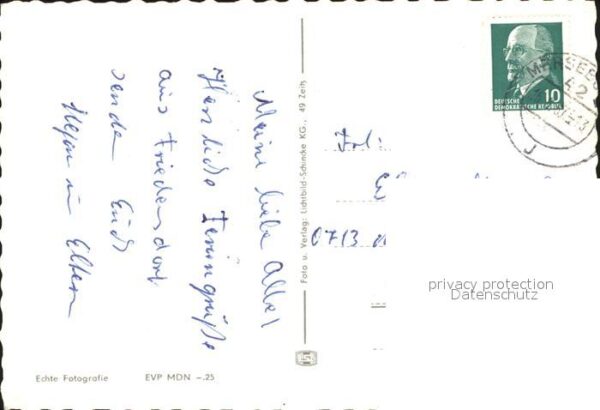 Meine liebe Alle!
Herzliche Feriengrüße
aus Friedersdorf
sende Euch
u. Eltern
Echte Fotografie EVP MDN –.25
Foto u. Verlag: Lichtbild-Schincke KG., 49 Zeitz
MERSEB
42
10
DEUTSCHE
DEMOKRATISCHE REPUBLIK
0713
privacy protection
Datenschutz